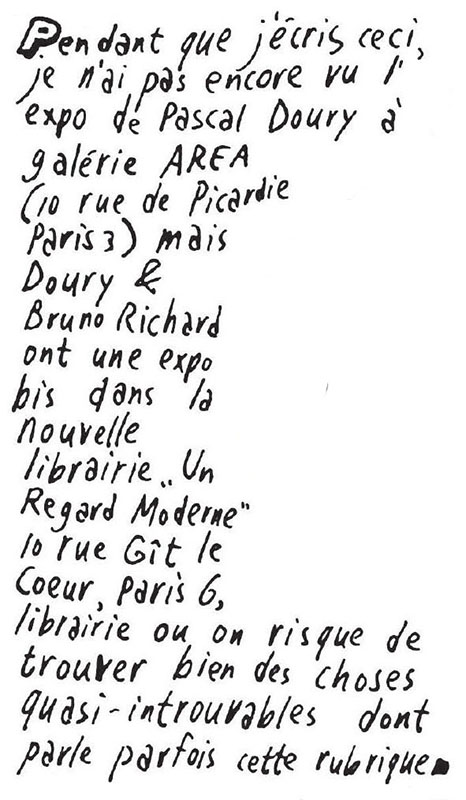 Pendant que j'écris ceci,
je n'ai pas encore vu l'
expo de Pascal Doury à
galérie AREA
(10 rue de Picardie
Paris 3) mais
Doury &
Bruno Richard
ont une expo
bis dans la
nouvelle
librairie „Un
Regard Moderne"
10 rue Gît le
Coeur, Paris 6,
librairie ou on risque de
trouver bien des choses
quasi-introuvables dont
parle parfois cette rubrique